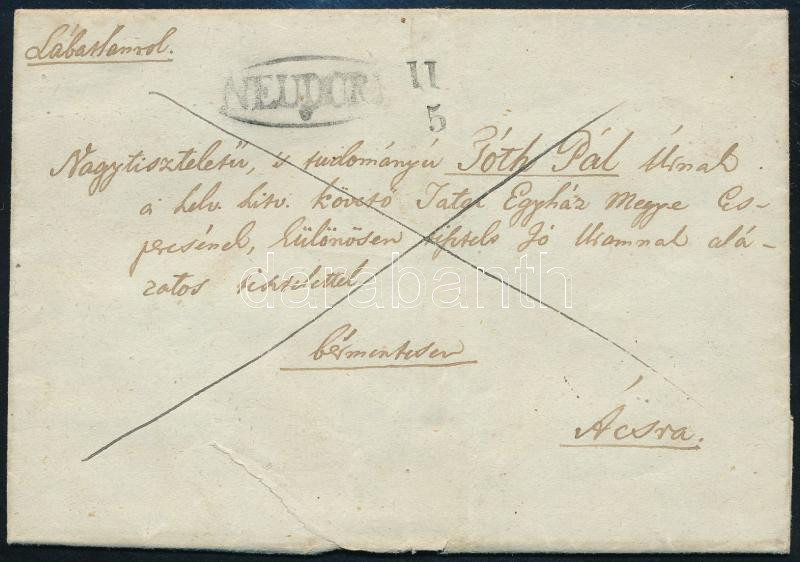 Lábatlanrol.
NEUDORF
11
5
Nagytiszteletü, s tudományú Tóth Pál Úrnak
a helv. hitv. követő Tatai Egyház Megye Es-
peresének, különösen tisztelt Jó Uramnak alá-
zatos tisztelettel
darabanth
bérmentesen
Ácsra.